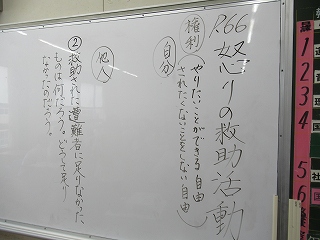 P.66 怒りの救助活動
権利
自分
やりたいことができる自由
されたくないことをしない自由
他人
②救助された遭難者に足りなかった
ものは何だろう。どうして足り
なかったのだろう。
1
2
3
4
5
6
理
国
社
国